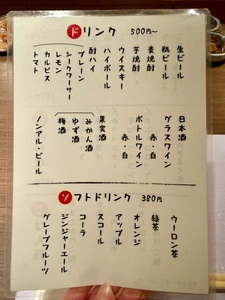 ドリンク 500円~
生ビール
瓶ビール
麦焼酎
芋焼酎
ウイスキー
ハイボール
酎ハイ
プレーン
シークワーサー
レモン
カルピス
トマト
日本酒
グラスワイン
赤・白
ボトルワイン
赤・白
果実酒
みかん酒
ゆず酒
梅酒
ノンアル・ビール
ソフトドリンク 380円
ウーロン茶
緑茶
オレンジ
アップル
スコール
コーラ
ジンジャーエール
グレープフルーツ